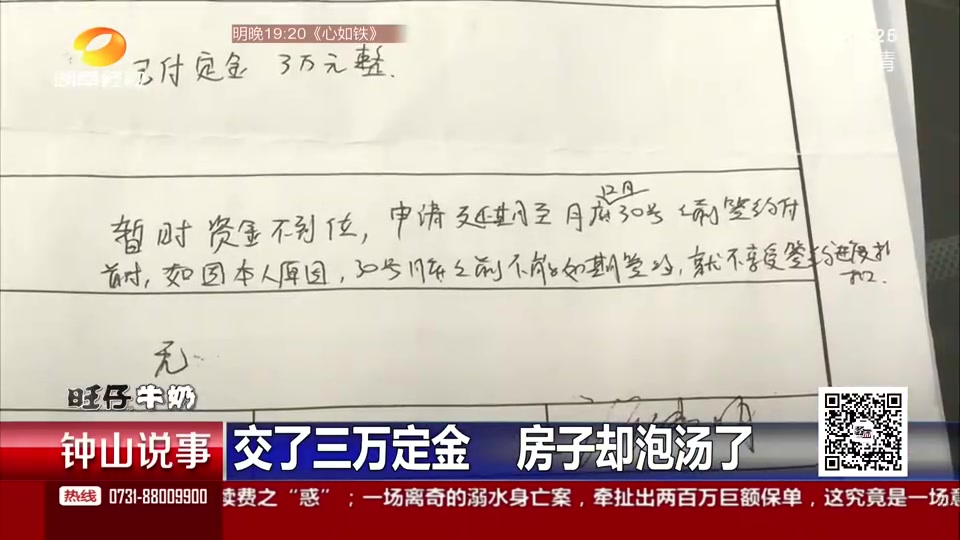 明晚19:20《心如铁》
已付定金 3万元整.
12月
暂时资金不到位，申请延期至月底30号之前签约付
首付，如因本人原因，30号之前不能如期签约，就不享受签约进度折
扣.
无
旺仔牛奶
钟山说事
交了三万定金 房子却泡汤了
热线 0731-88009900
续费之“惑”；一场离奇的溺水身亡案，牵扯出两百万巨额保单，这究竟是一场意